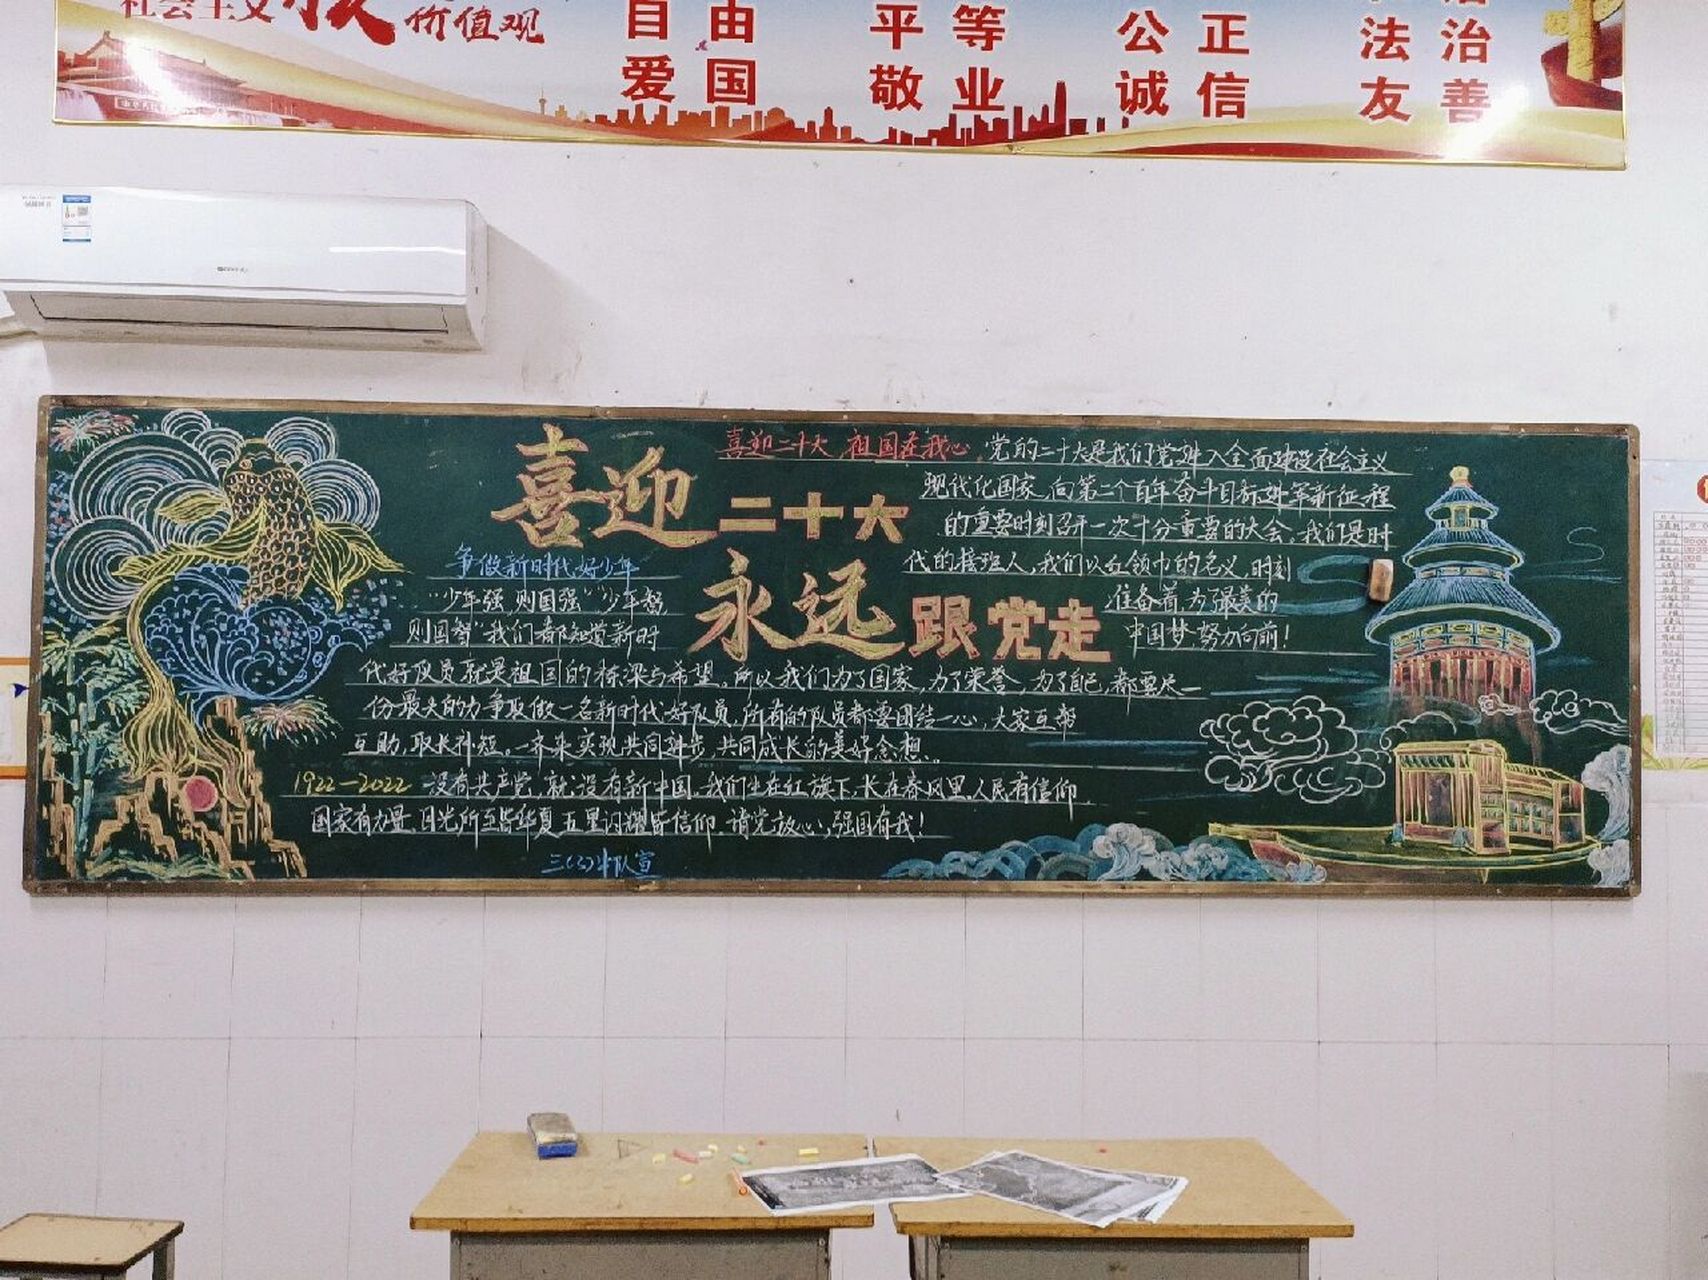 社会主义核价值观
自由 平等 公正 法治
爱国 敬业 诚信 友善
喜迎二十大
永远跟党走
喜迎二十大 祖国在我心 党的二十大是我们党进入全面建设社会主义
现代化国家、向第二个百年奋斗目标进军新征程
的重要时刻召开一次十分重要的大会,我们是时
代的接班人,我们以红领巾的名义,时刻
准备着,为了最美的
中国梦,努力向前!
争做新时代好少年
“少年强,则国强”“少年智,
则国智”我们都知道新时
代好队员就是祖国的栋梁与希望。所以我们为了国家,为了荣誉,为了自己,都要尽一
份最大的力争取做一名新时代好队员,所有的队员都要团结一心,大家互帮
互助,取长补短。一齐来实现共同进步,共同成长的美好念想。
1922—2022 没有共产党,就没有新中国。我们生在红旗下,长在春风里,人民有信仰,
国家有力量,目光所至皆华夏,五星闪耀皆信仰,请党放心,强国有我!
三(3)中队宣